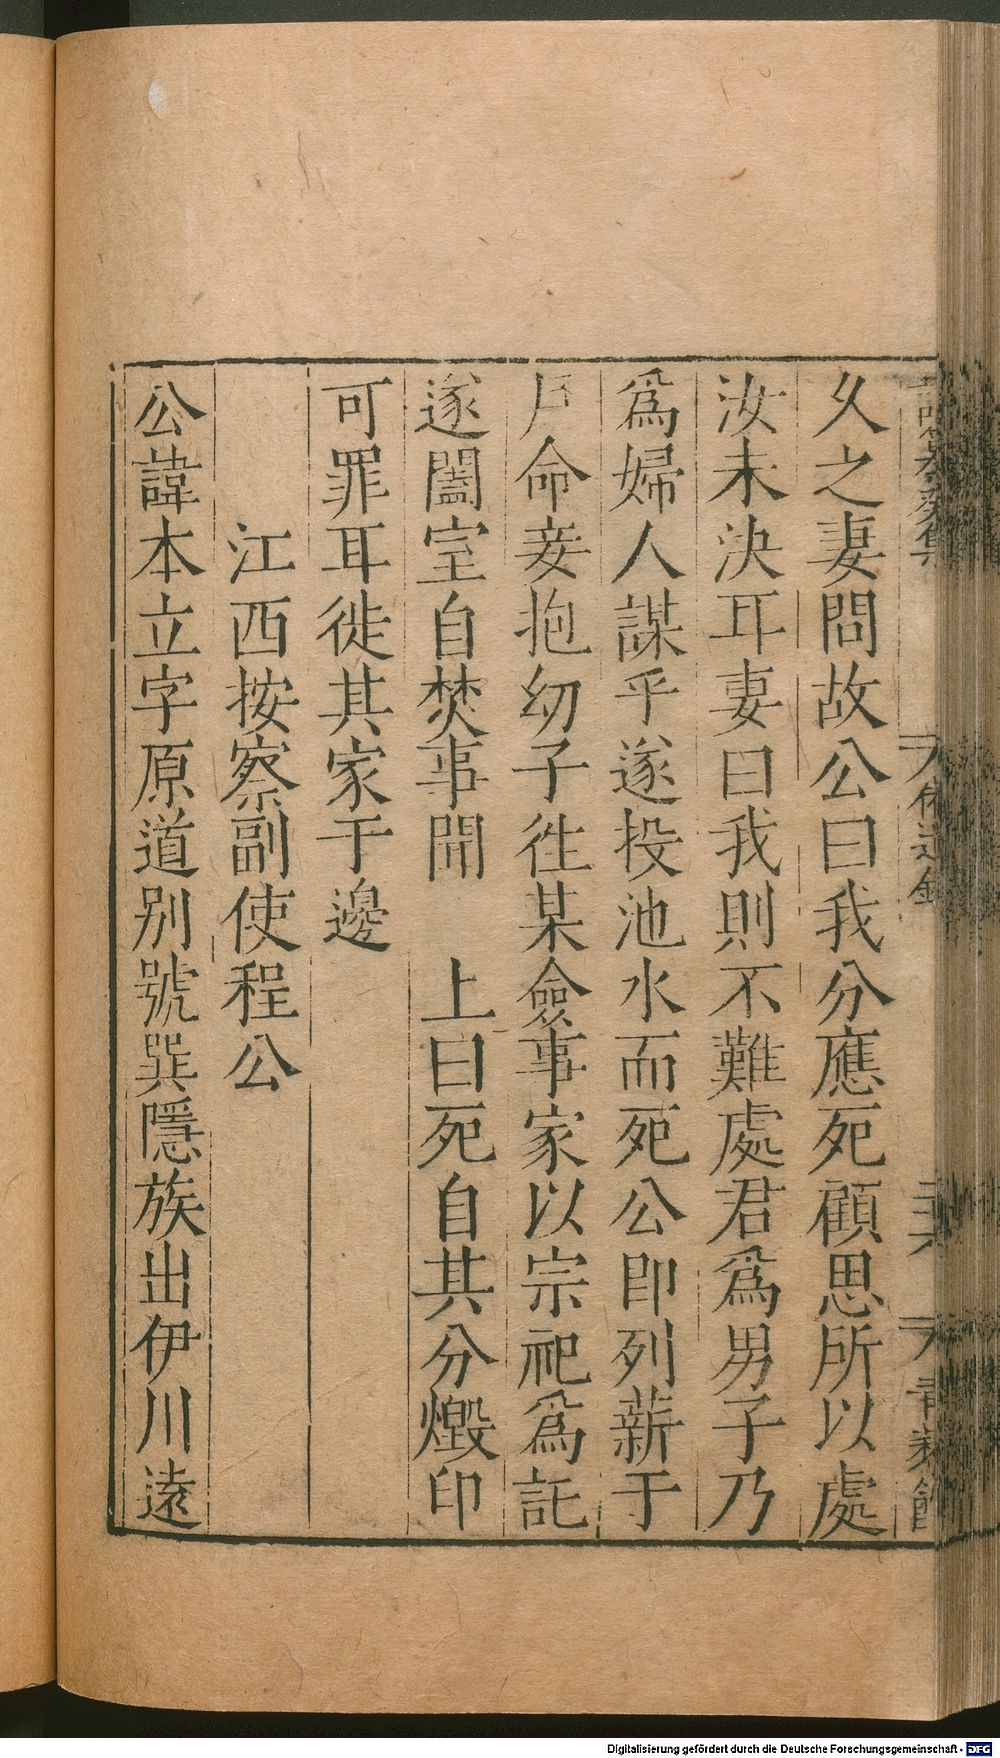 久之妻問故公曰我分應死顧思所以處
汝未決耳妻曰我則不難處君爲男子乃
爲婦人謀乎遂投池水而死公即列薪于
戶命妾抱幼子徃某僉事家以宗祀爲託
遂闔室自焚事聞　上曰死自其分燬印
可罪耳徙其家于邊
江西按察副使程公
公諱本立字原道別號巽隱族出伊川遠
Digitalisierung gefördert durch die Deutsche Forschungsgemeinschaft - DFG